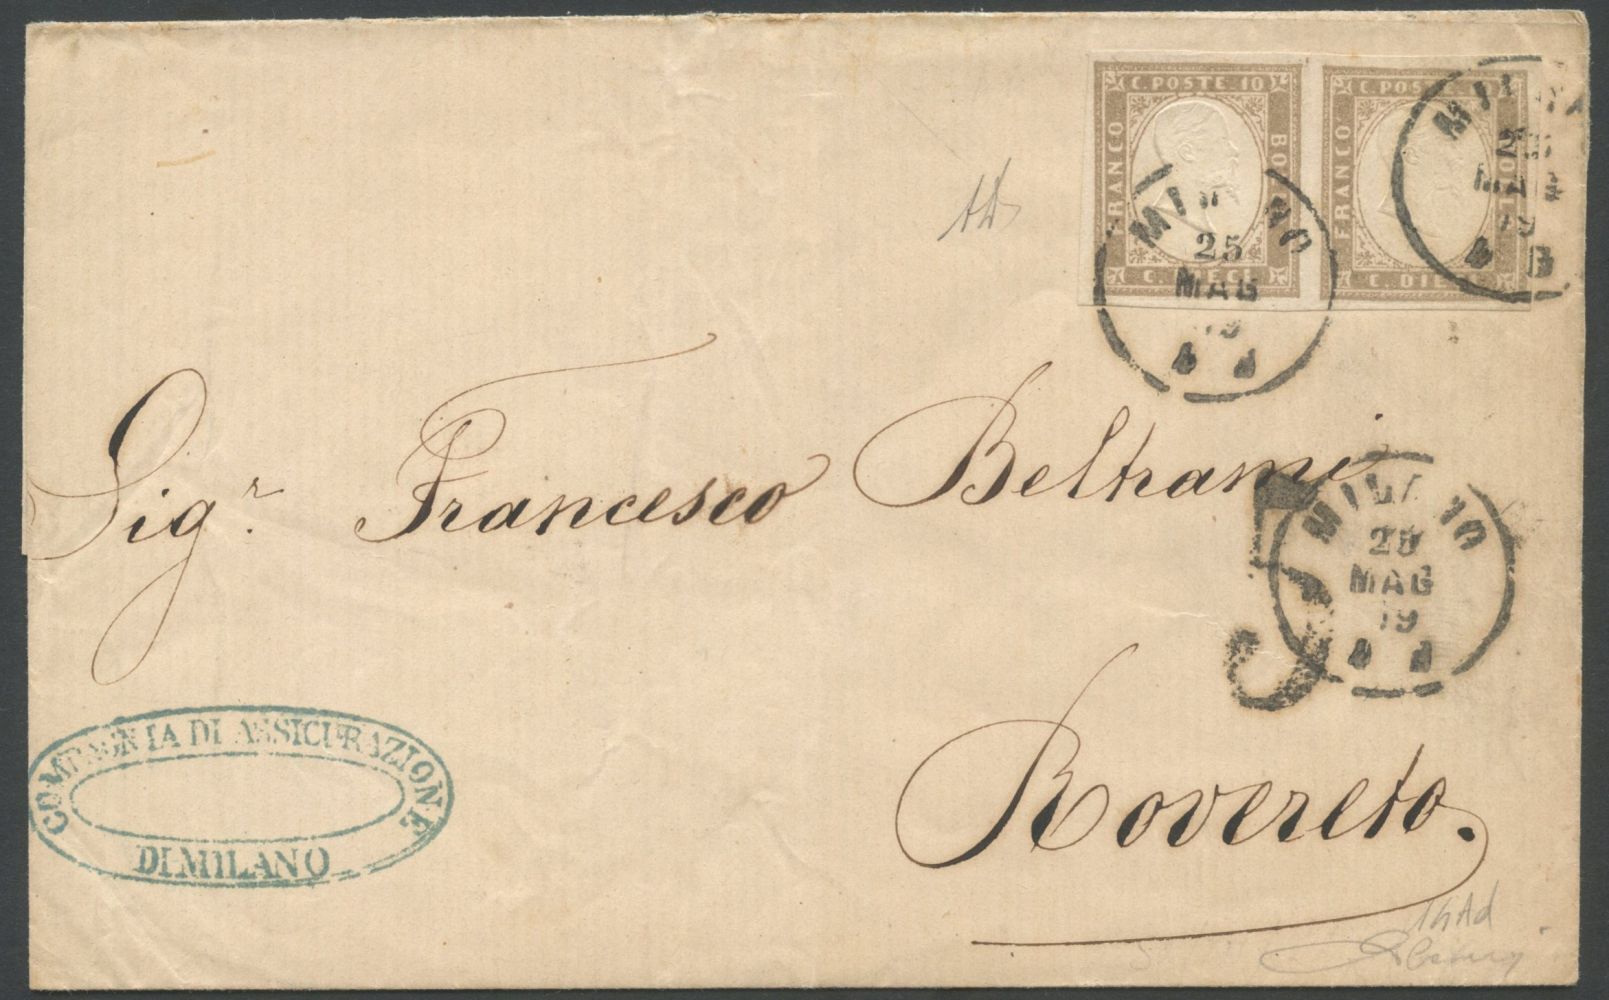 C. POSTE 10
FRANCO
BOLLO
C. DIECI
C. POSTE
FRANCO
BOLLO
C. DIECI
MILANO
25
MAG
MILANO
25
MAG
19
Sig.r Francesco Beltrami
MILANO
25
MAG
19
5
Rovereto.
COMPAGNIA DI ASSICURAZIONE
DI MILANO
14Ad